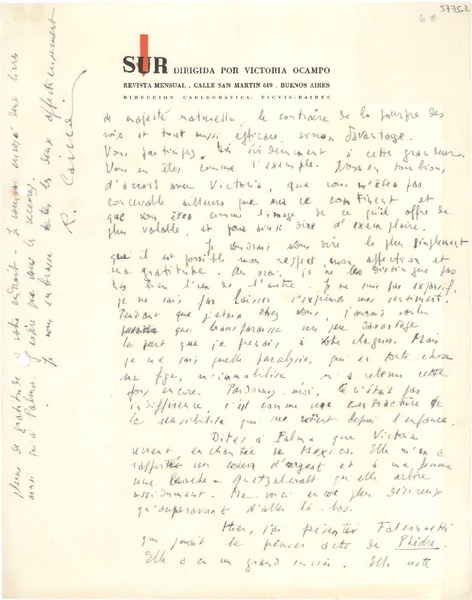 57752
6
SUR DIRIGIDA POR VICTORIA OCAMPO
REVISTA MENSUAL . CALLE SAN MARTIN 689 . BUENOS AIRES
DIRECCION CABLEGRAFICA: VICVIC-BAIRES
de majesté naturelle, le contraire de la pourpre des
rois et tout aussi efficace, sinon davantage.
Vous participez très évidemment à cette grandeur.
Vous en êtes comme l'exemple. Nous en tombions
d'accord avec Victoria, que vous n'étiez pas
concevable ailleurs que sur ce continent et
que vous étiez comme l'image de ce qu'il offre de
plus valable, et pour ainsi dire d'exemplaire.
Je voudrais vous dire le plus simplement
que il est possible mon respect mon affection et
ma gratitude. Au vrai, je ne les distingue pas
très bien l'un de l'autre. Je ne suis pas expansif,
je ne sais pas laisser s'exprimer mes sentiments.
Pendant que j'étais chez vous, j'aurais voulu
que transparaisse un peu davantage
la part que je prenais à votre chagrin. Mais
je ne sais quelle paralysie, qui en toute chose
me fige, m'immobilise m'a retenu cette
fois encore. Pardonnez-moi, ce n'était pas
indifférence, c'est comme une contracture de
la sensibilité qui me retient depuis l'enfance.
Dites à Palma que Victoria
revient, enchantée de Mexico. Elle m'en a
rapporté un cœur d'argent et à ma femme
une broche-Quetzalcoatl qu'elle arbore
assidument. Me voici encore plus désireux
qu'auparavant d'aller là-bas.
Hier, j'ai présenté Falconnetti
qui jouait le premier acte de Phèdre.
Elle a eu un grand succès. Elle reste
pleine de gratitude à votre endroit. Je vous ai envoyé deux livres
ainsi qu'à Palma. J'espère que vous les recevrez.
Je vous embrasse toutes les deux affectueusement
R. Caillois